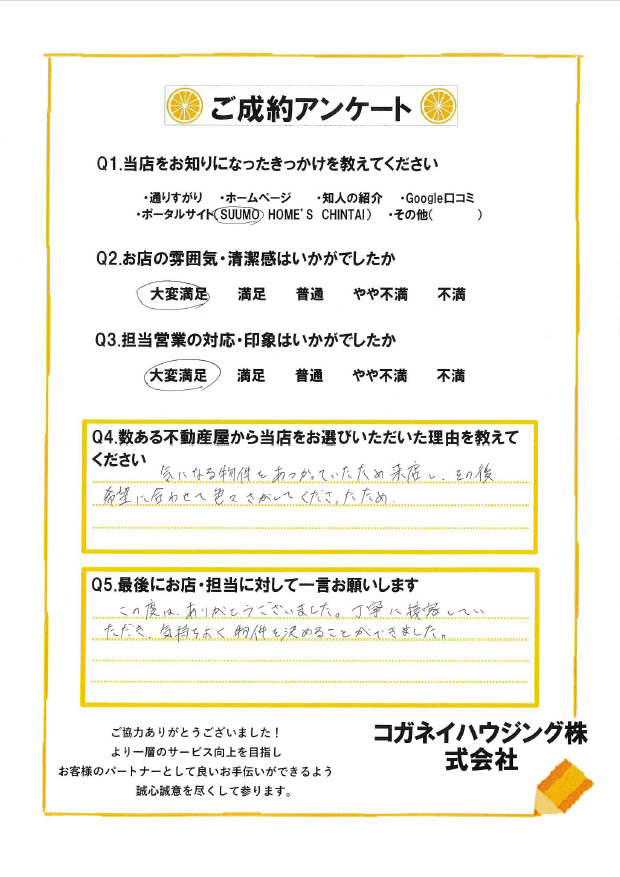 ご成約アンケート
Q1.当店をお知りになったきっかけを教えてください
・通りすがり ・ホームページ ・知人の紹介 ・Google口コミ
・ポータルサイト(SUUMO HOME'S CHINTAI) ・その他( )
Q2.お店の雰囲気・清潔感はいかがでしたか
大変満足 満足 普通 やや不満 不満
Q3.担当営業の対応・印象はいかがでしたか
大変満足 満足 普通 やや不満 不満
Q4.数ある不動産屋から当店をお選びいただいた理由を教えて
ください
気になる物件をあつかっていたため来店し、その後
希望に合わせて色々さがしてくださったため.
Q5.最後にお店・担当に対して一言お願いします
この度は、ありがとうございました。丁寧に接客してい
ただき、気持ちよく物件を決めることができました。
ご協力ありがとうございました！
より一層のサービス向上を目指し
お客様のパートナーとして良いお手伝いができるよう
誠心誠意を尽くして参ります。
コガネイハウジング株
式会社